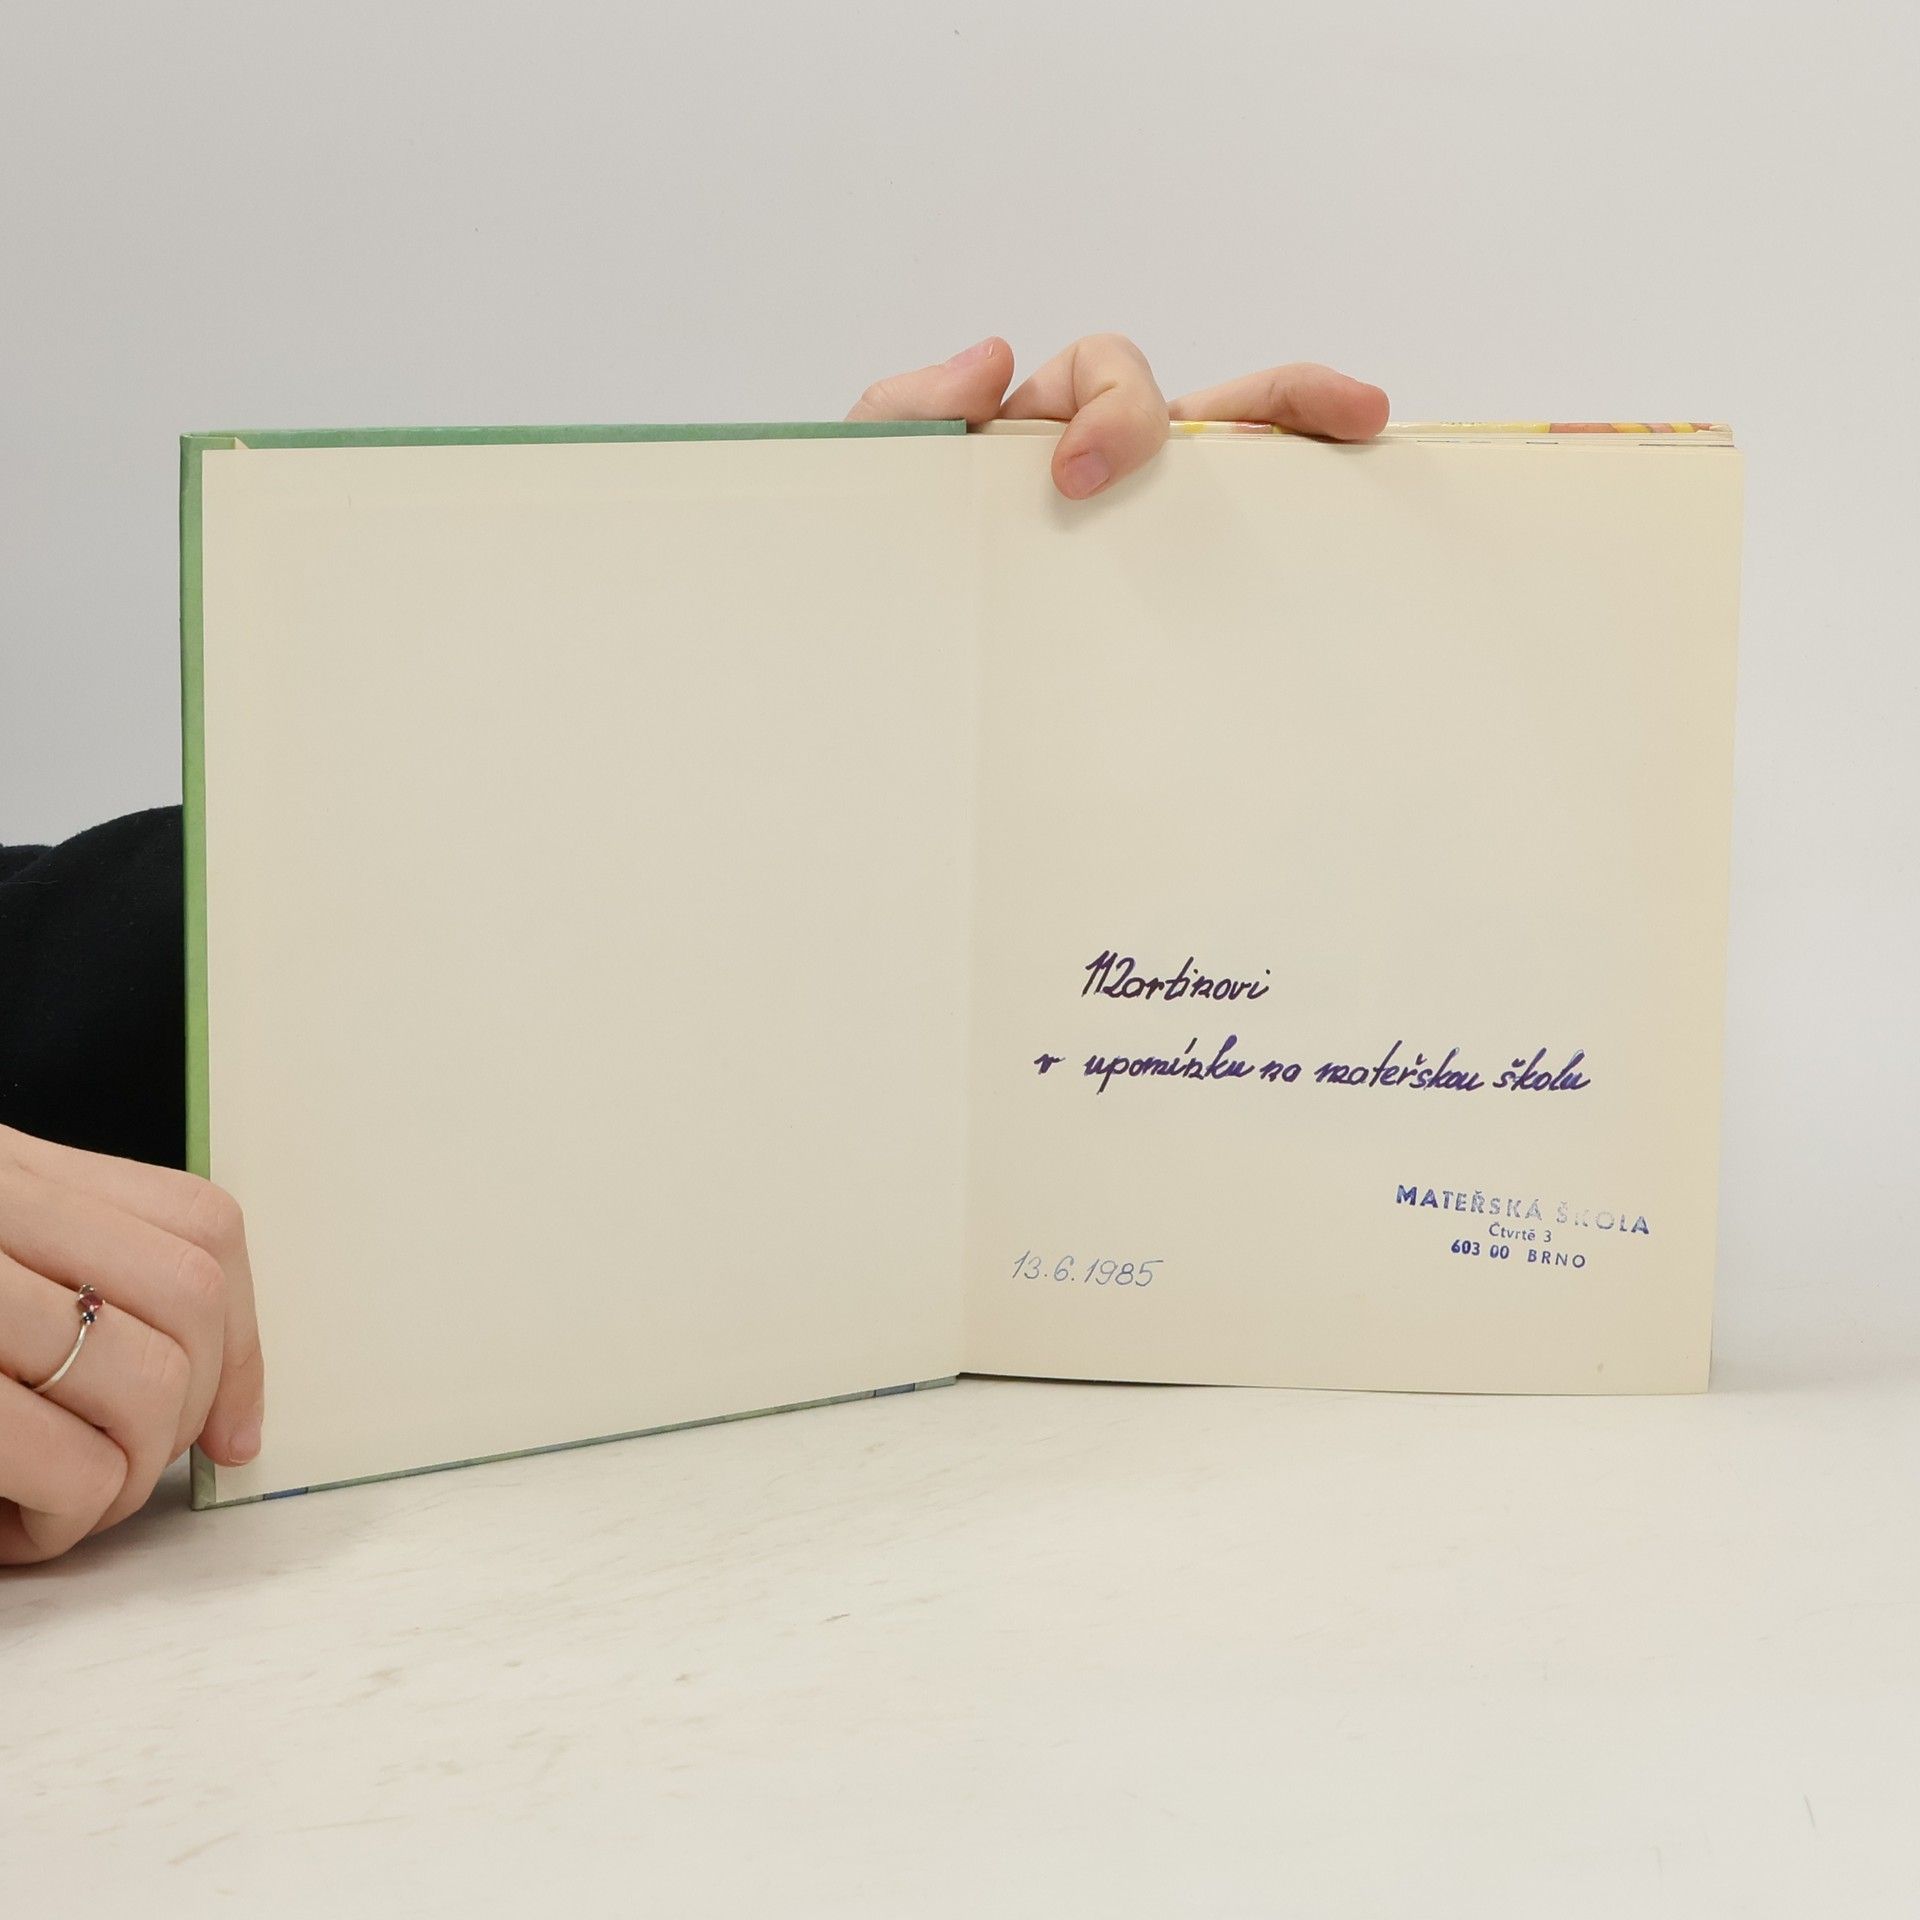 Martinovi
v upomínku na mateřskou školu
MATEŘSKÁ ŠKOLA
Čtvrtě 3
603 00 BRNO
13.6.1985